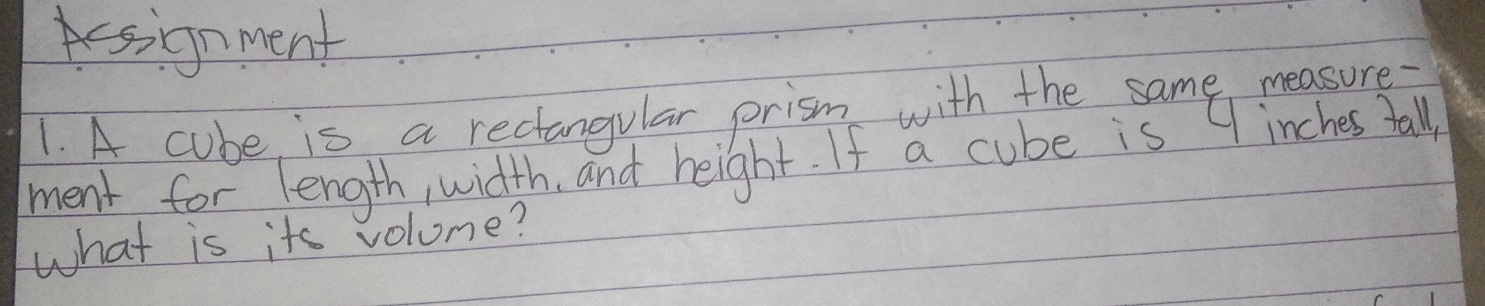 Assignment
1. A cube is a rectangular prism with the same measure-
ment for length, width, and height. If a cube is 4 inches tall,
what is its volume?